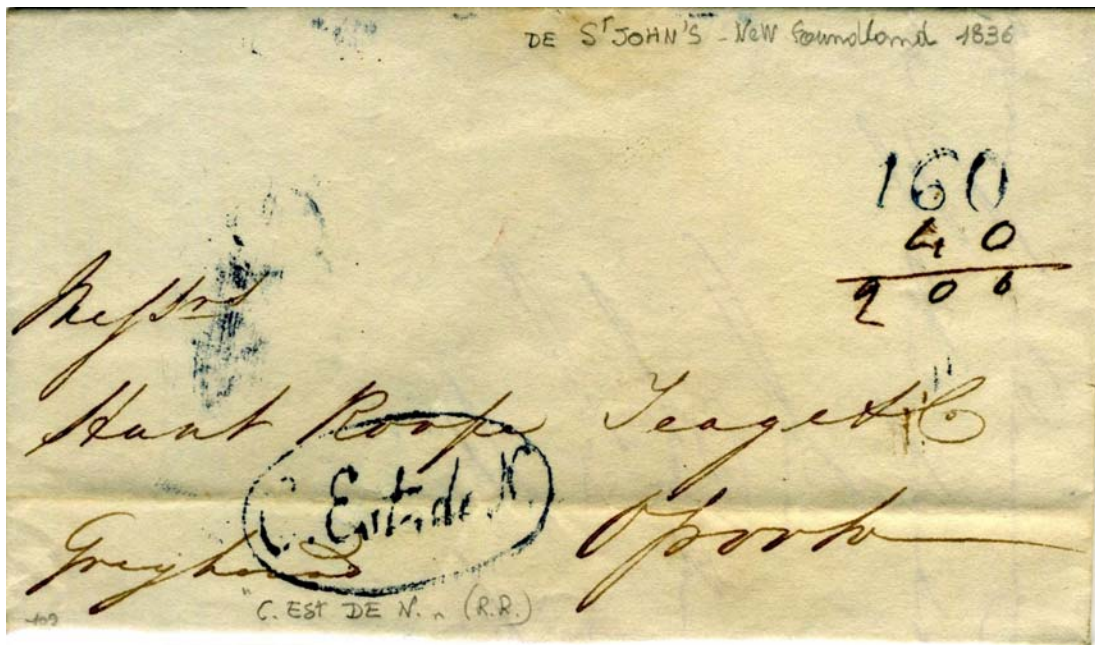 DE Sᵗ JOHN'S - New Foundland 1836
160
40
200
Messrs
Hunt Roope Teage & Co
C. Est. de N.
Greyhound Oporto
"C. EST DE N." (R.R.)